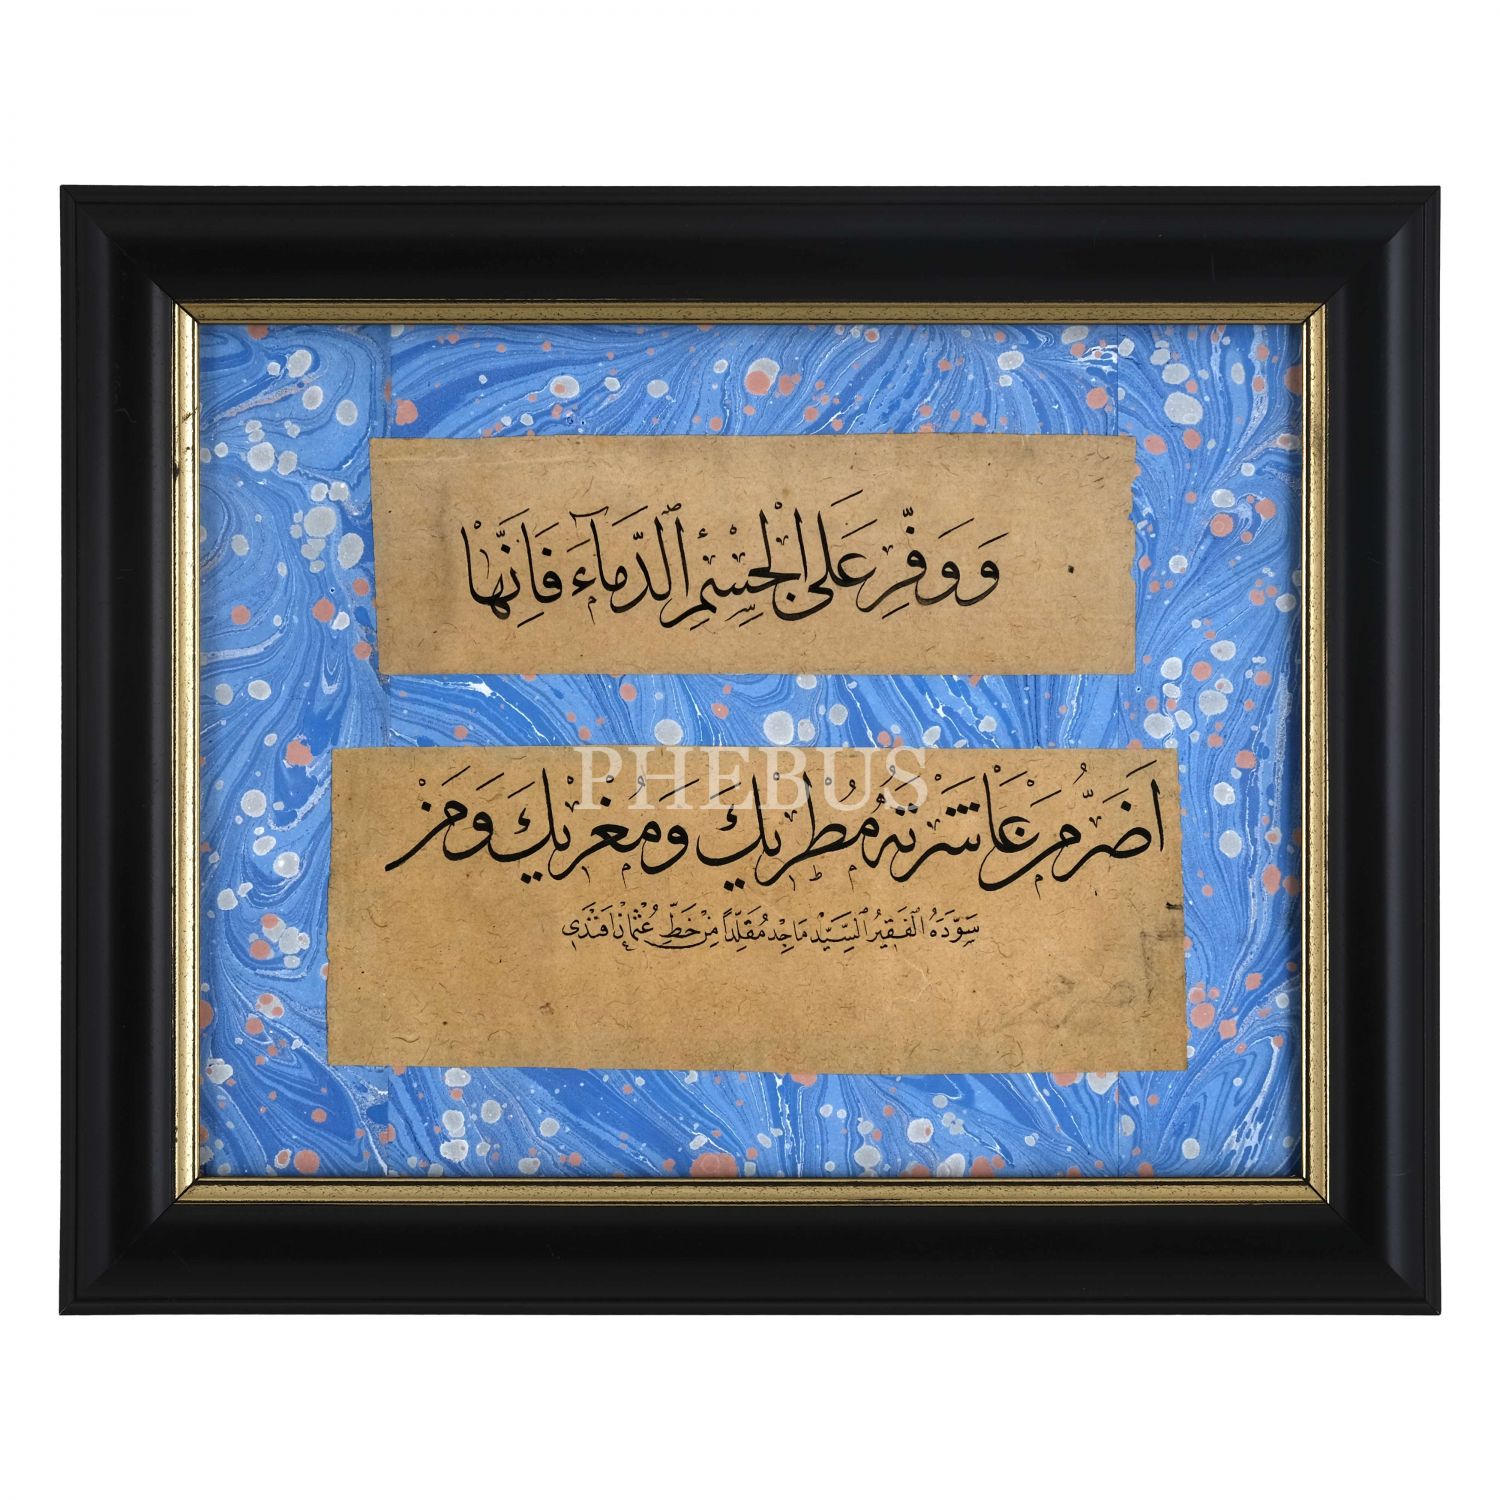 وَوَفِّرْ عَلَى الْجِسْمِ الدِّمَاءَ فَإِنَّهَا
PHEBUS
أَضَرُّ مَنْ عَاشَرْتَهُ مُطْرِيكَ وَمُغْرِيكَ وَمَنْ
سَوَّدَهُ الْفَقِيرُ السَّيِّدْ مَاجِدْ مُقَلِّدًا مِنْ خَطِّ عُثْمَانْ اَفَنْدِي